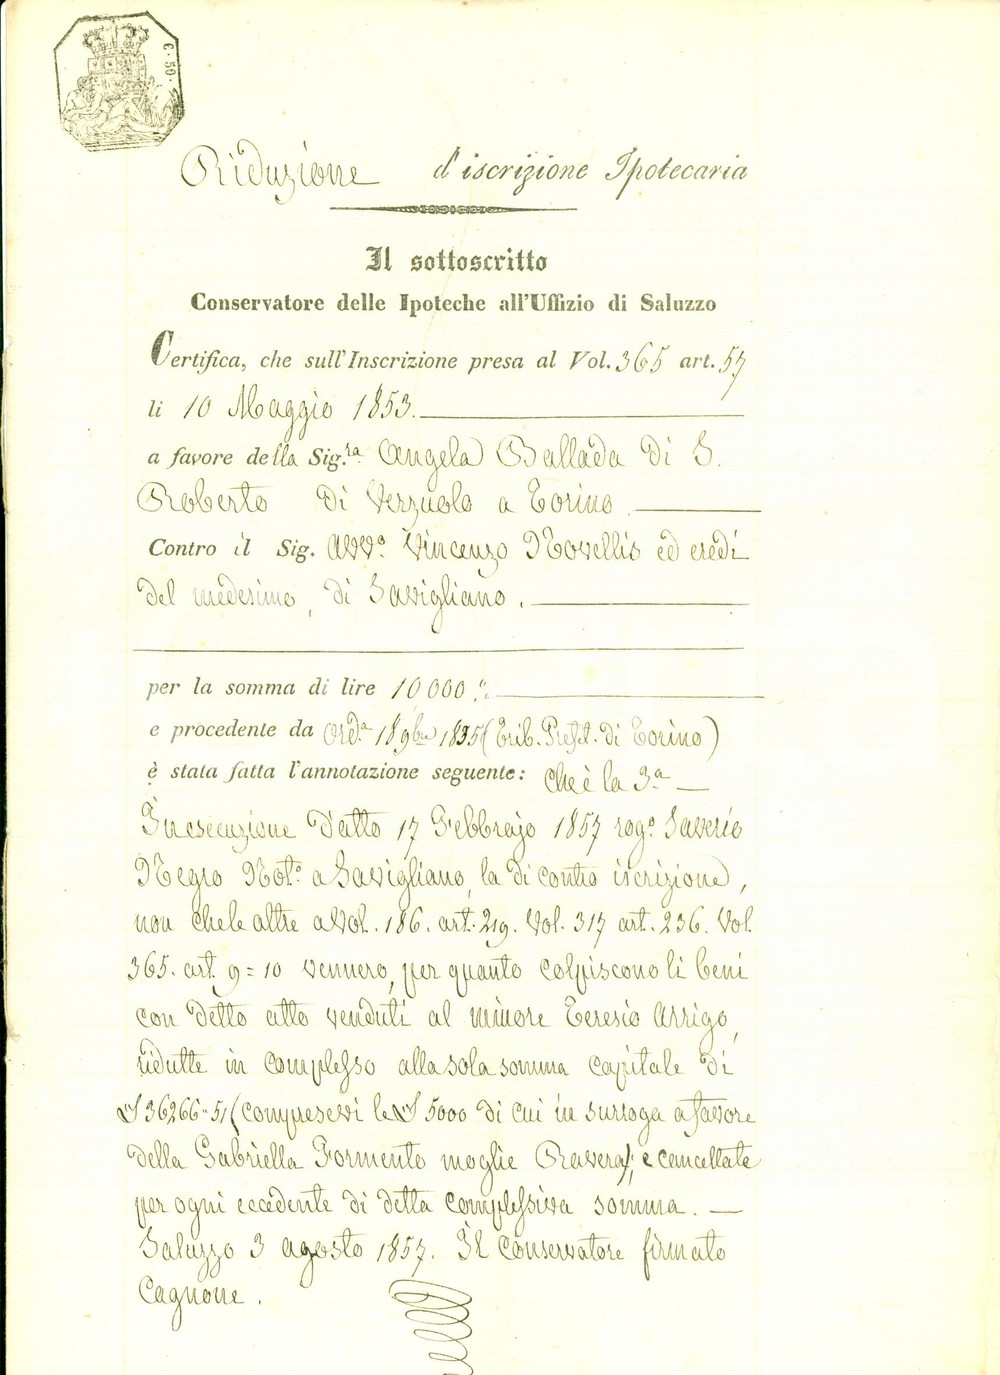 C. 50.
Riduzione d'iscrizione Ipotecaria
Il sottoscritto
Conservatore delle Ipoteche all'Uffizio di Saluzzo
Certifica, che sull'Inscrizione presa al Vol. 365 art. 57
li 10 Maggio 1853.
a favore della Sig.ra Angela Ballada di S.
Roberto di Verzuolo a Torino
Contro il Sig. Avv.o Vincenzo Novellis ed eredi
del medesimo, di Savigliano.
per la somma di lire 10000
e procedente da Ord.a 18 9bre 1835 (Trib. Prefet. di Torino)
è stata fatta l'annotazione seguente: che è la 3a
In esecuzione d'atto 17 Febbrajo 1857 rog.o Saverio
Negro Not.o a Savigliano, la di contro iscrizione,
non che le altre a Vol. 186. art. 219. Vol. 317 art. 236. Vol.
365. art. 9 = 10 vennero, per quanto colpiscono li beni
con detto atto venduti al minore Teresio Arrigo,
ridutte in complesso alla sola somma capitale di
£ 36266-51 (compresevi le £ 5000 di cui in surroga a favore
della Gabriella Formento moglie Ravera); e cancellate
per ogni eccedente di detta complessiva somma.
Saluzzo 3 agosto 1857. Il Conservatore firmato
Cagnone.